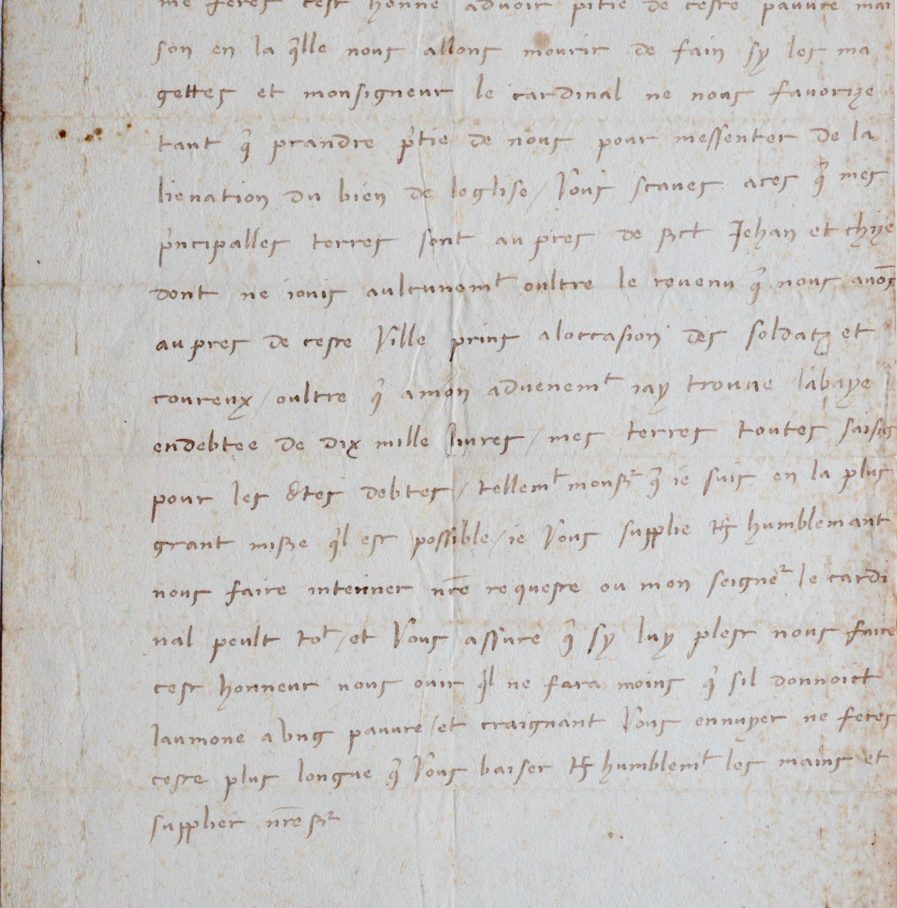 me feres cest honne advoir pitie de ceste pauvre mai
son en la qlle nous allons mourir de fain sy les ma
gettes et monsigneur le cardinal ne nous favorize
tant q̃ prandre p̃tie de nous pour messenter de la
lienation du bien de leglise / Vous scaves aces q̃ mes
p̃ncipalles terres sont aupres de sct Jehan et
dont ne iouis aulcunemt oultre le revenu q̃ nous avõs
aupres de ceste Ville prins aloccasion des soldatz et
coureux / oultre q̃ amon advenemt iay trouve labaye
endebtee de dix mille livres / mes terres toutes saisig
pour les dtes debtes / tellemt monsr q̃ ie suis en la plus
grant misẽ ql est possible / ie Vous supplie tẽs humblemant
nous faire interiner nr̃e requeste ou mon seigner le cardi
nal peult tot / et Vous assure q̃ sy luy plest nous faire
cest honneur nous ouir ql ne fara moins q̃ sil donnoict
laumone a Vng pauvre / et craignant Vous ennuyer ne feres
ceste plus longue q̃ Vous baiser tẽs humblemt les mains et
supplier nr̃e sr